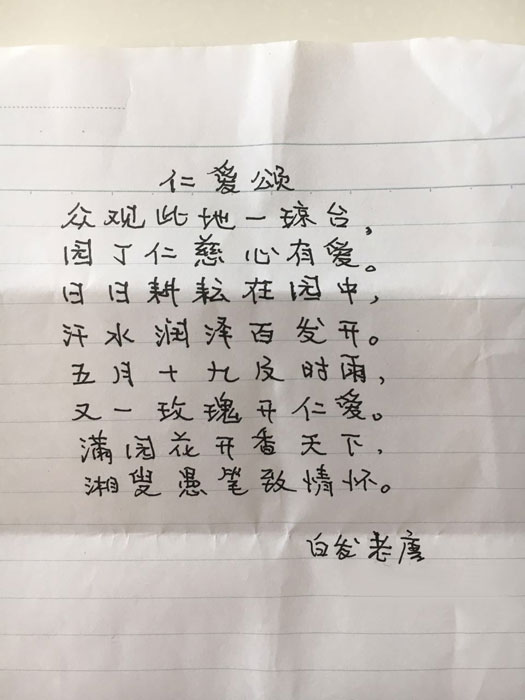 仁爱颂
众观此地一琼台,
园丁仁慈心有爱。
日日耕耘在园中,
汗水润泽百发开。
五月十九及时雨,
又一玫瑰开仁爱。
满园花开香天下,
湘叟愚笔致情怀。
白发老唐